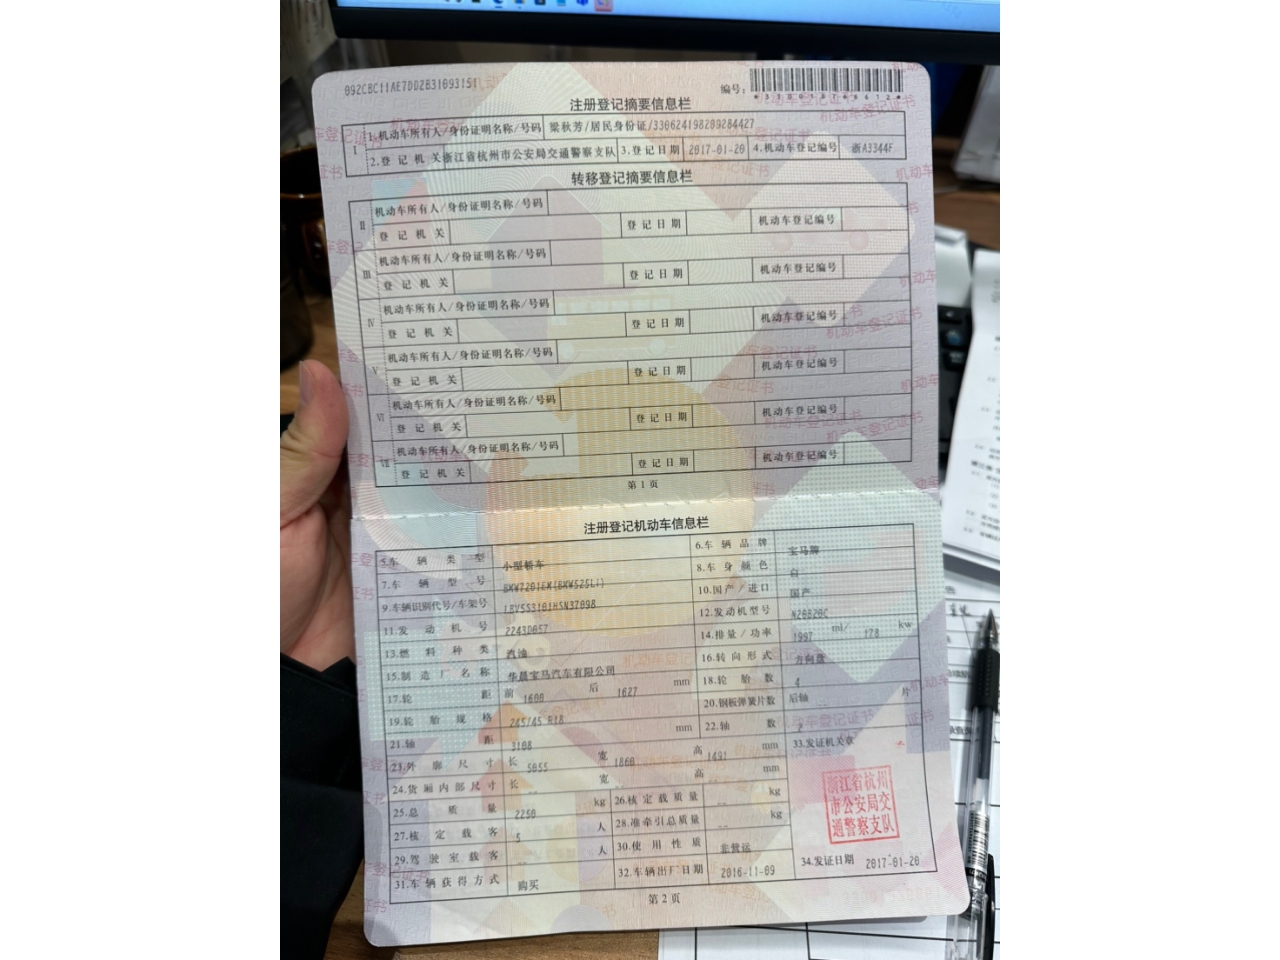 092CBC11AE7DD2B31693151
编号:
注册登记摘要信息栏
I 1.机动车所有人/身份证明名称/号码 梁秋芳/居民身份证/330624198209284427
2.登记机关 浙江省杭州市公安局交通警察支队 3.登记日期 2017-01-20 4.机动车登记编号 浙A3344F
转移登记摘要信息栏
II 机动车所有人/身份证明名称/号码
登记机关 登记日期 机动车登记编号
III 机动车所有人/身份证明名称/号码
登记机关 登记日期 机动车登记编号
IV 机动车所有人/身份证明名称/号码
登记机关 登记日期 机动车登记编号
V 机动车所有人/身份证明名称/号码
登记机关 登记日期 机动车登记编号
VI 机动车所有人/身份证明名称/号码
登记机关 登记日期 机动车登记编号
VII 机动车所有人/身份证明名称/号码
登记机关 登记日期 机动车登记编号
第1页
注册登记机动车信息栏
5.车辆类型 小型轿车 6.车辆品牌 宝马牌
7.车辆型号 BMW7201EM(BMW525Li) 8.车身颜色 白
9.车辆识别代号/车架号 LBV5S3101HSN37098 10.国产/进口 国产
11.发动机号 2243D057 12.发动机型号 N20B20C
13.燃料种类 汽油 14.排量/功率 1997 ml/ 178 kw
15.制造厂名称 华晨宝马汽车有限公司 16.转向形式 方向盘
17.轮距 前 1600 后 1627 mm 18.轮胎数 4
19.轮胎规格 245/45 R18 20.钢板弹簧片数 后轴 片
21.轴距 3108 mm 22.轴数 2
23.外廓尺寸 长 5055 宽 1868 高 1491 mm 33.发证机关章
24.货厢内部尺寸 长 -- 宽 -- 高 mm
25.总质量 2250 kg 26.核定载质量 -- kg
27.核定载客 5 人 28.准牵引总质量 -- kg
29.驾驶室载客 -- 人 30.使用性质 非营运
31.车辆获得方式 购买 32.车辆出厂日期 2016-11-09 34.发证日期 2017-01-20
浙江省杭州
市公安局交
通警察支队
第2页